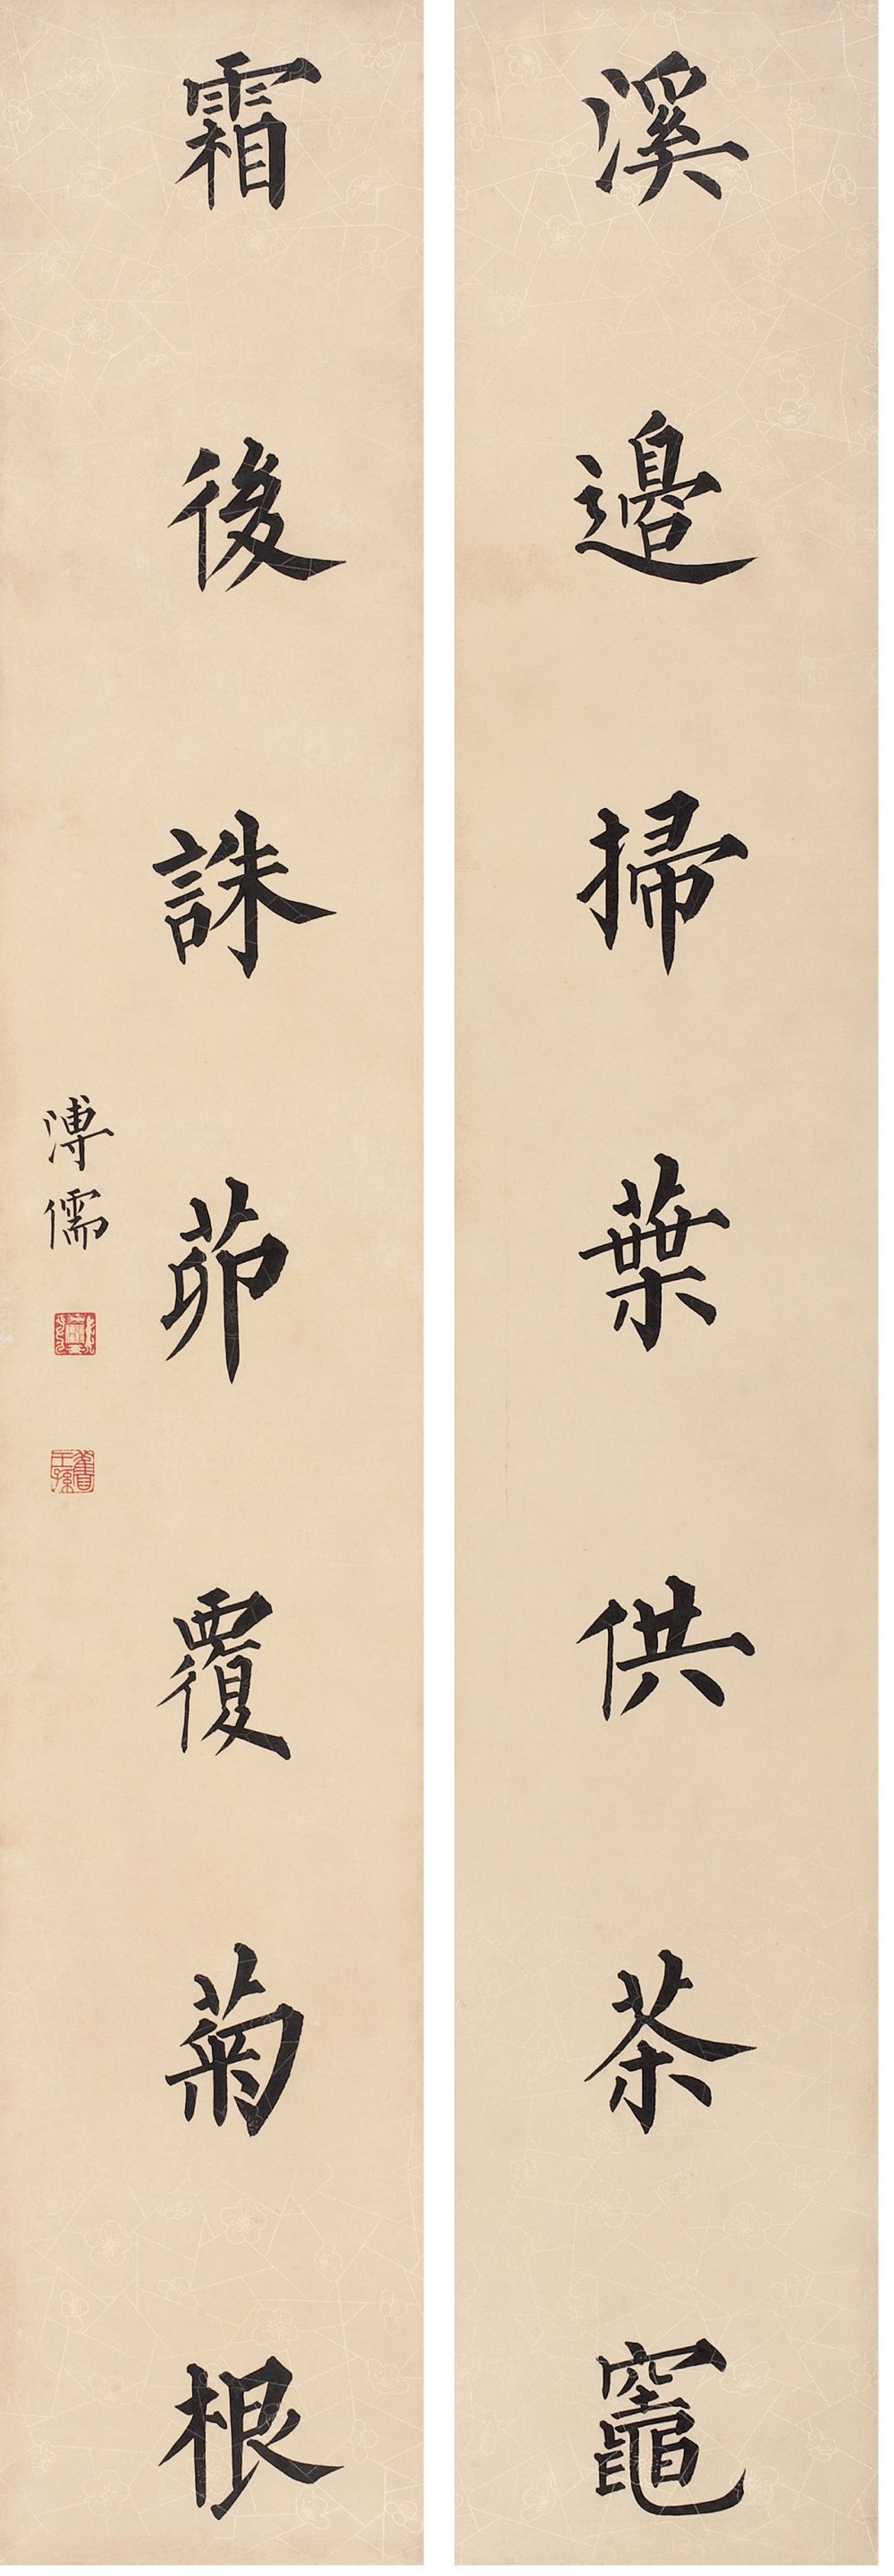 溪邊掃葉供茶竈
霜後誅茆覆菊根
溥儒
舊王孫